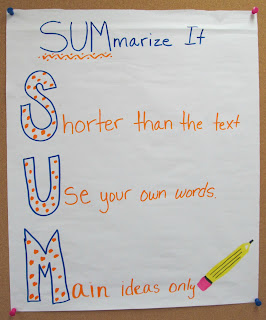 SUMmarize It
Shorter than the text
Use your own words.
Main ideas only